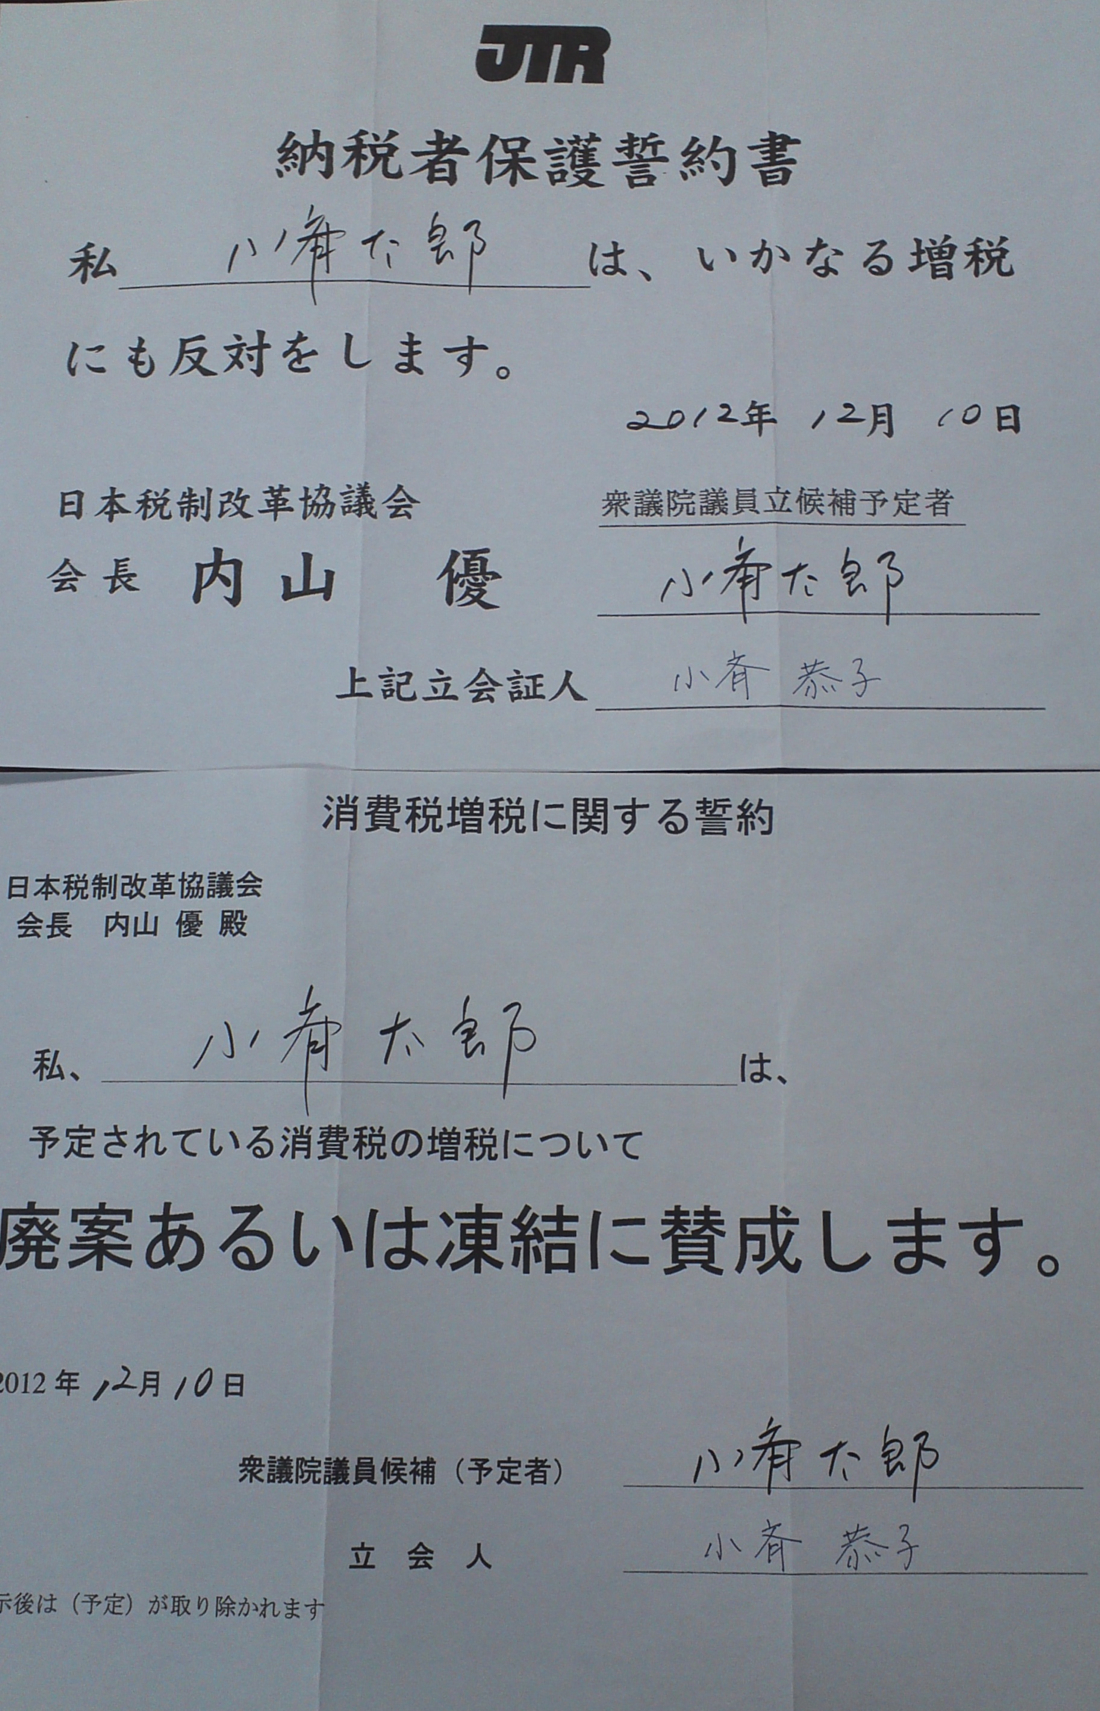 JTR
納税者保護誓約書
私 小斉太郎 は、いかなる増税
にも反対をします。
2012年 12月 10日
日本税制改革協議会
会長 内山 優
衆議院議員立候補予定者
小斉太郎
上記立会証人 小斉 恭子
消費税増税に関する誓約
日本税制改革協議会
会長 内山 優 殿
私、 小斉太郎 は、
予定されている消費税の増税について
廃案あるいは凍結に賛成します。
2012年 12月 10日
衆議院議員候補（予定者） 小斉太郎
立 会 人 小斉 恭子
示後は（予定）が取り除かれます